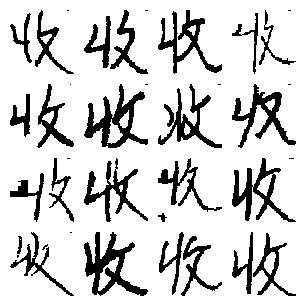 收收收收
收收收收
收收收收
收收收收